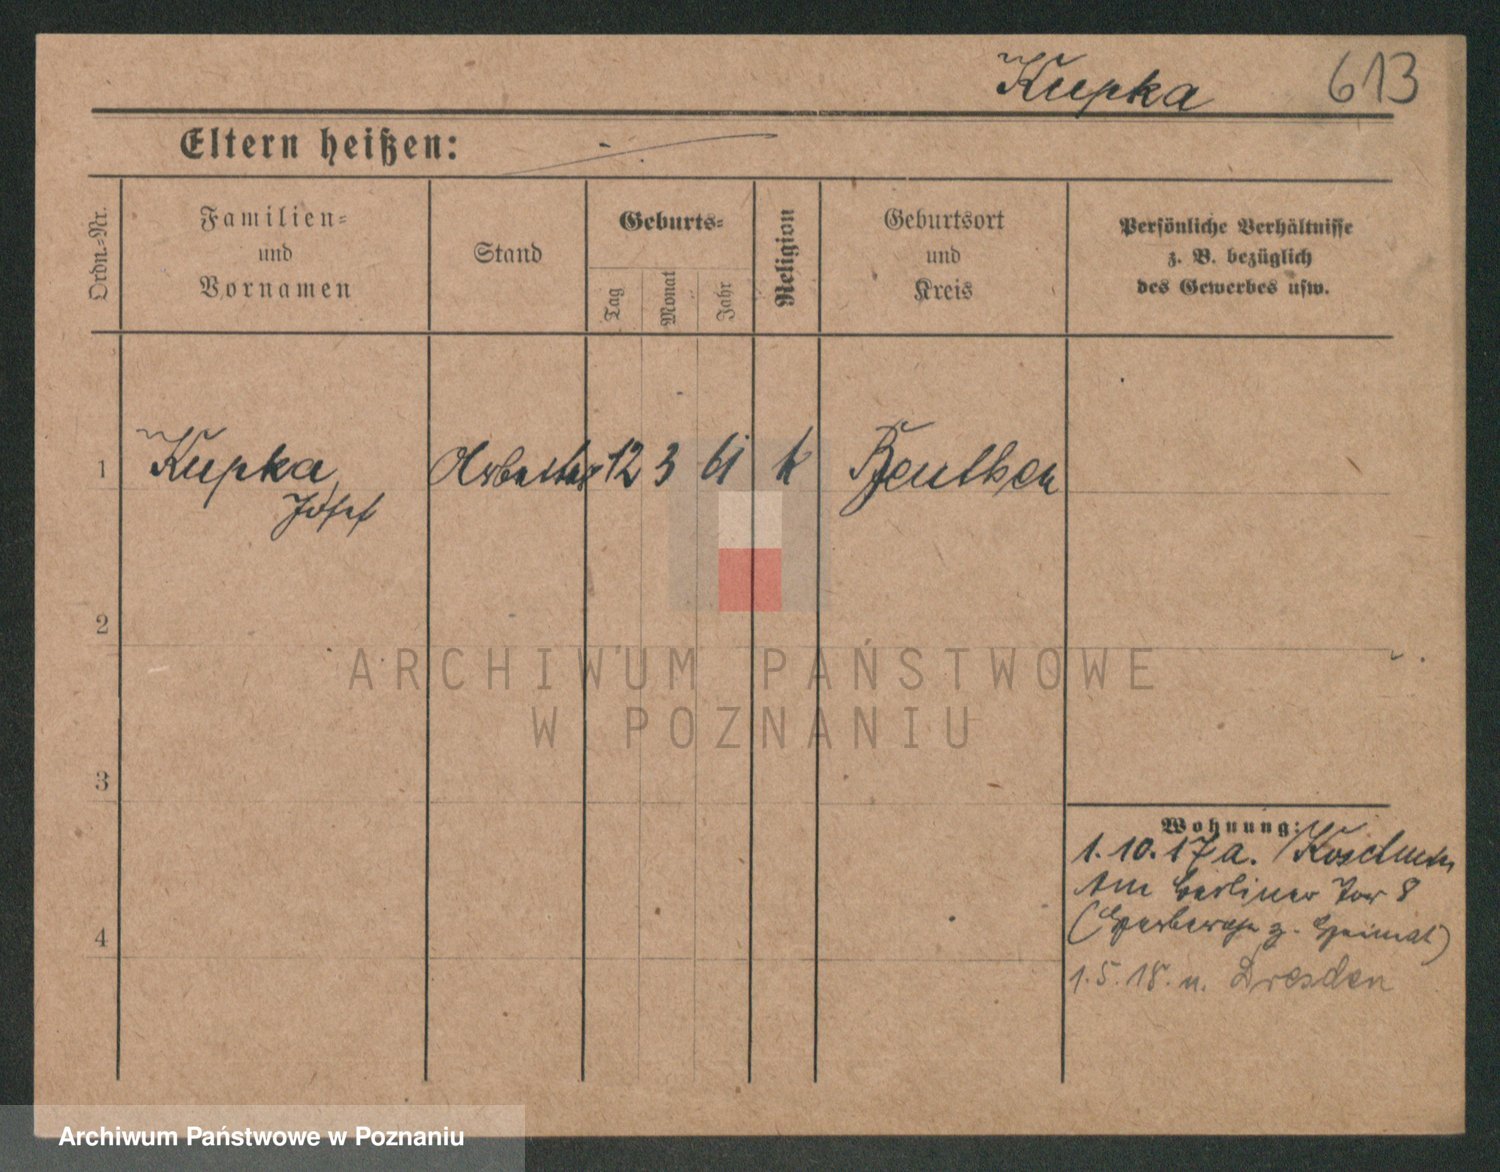 Kupka 613
Eltern heißen:
Ordn.-Nr.
Familien-
und
Vornamen
Stand
Geburts-
Tag
Monat
Jahr
Religion
Geburtsort
und
Kreis
Persönliche Verhältnisse
z. B. bezüglich
des Gewerbes usw.
1 Kupka Arbeiter 12 3 61 k Beuthen
Josef
2
ARCHIWUM PAŃSTWOWE
W POZNANIU
3
4
Wohnung:
1.10.17 a. Koschmin
Am Berliner Tor 8
(Herberge z. Heimat)
1.5.18. n. Dresden
Archiwum Państwowe w Poznaniu